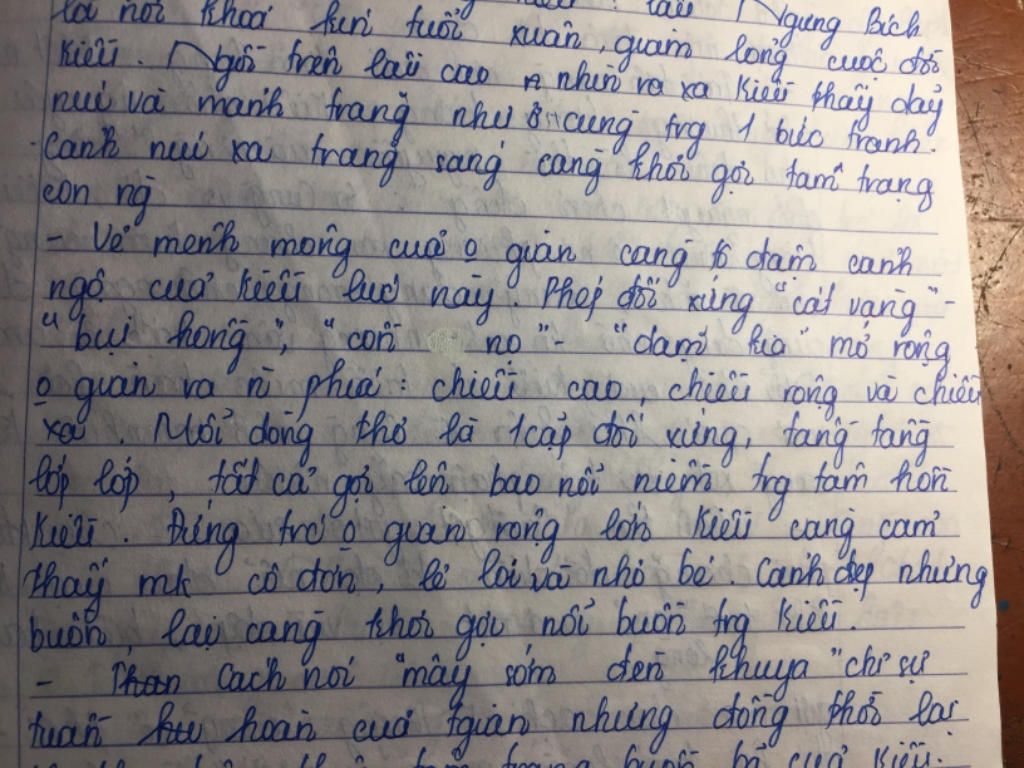 là nơi khoá kín tuổi xuân, giam lỏng cuộc đời
Kiều. Ngồi trên lầu cao nhìn ra xa Kiều thấy dãy
núi và mảnh trăng như ở cùng trg 1 bức tranh.
Cảnh núi xa trăng sáng càng khơi gợi tâm trạng
con ng
- Vẻ mênh mông của o gian càng tô đậm cảnh
ngộ của Kiều lúc này. Phép đối xứng "cát vàng" -
"bụi hồng", "cồn nọ" - "dặm kia" mở rộng
o gian ra n phía: chiều cao, chiều rộng và chiều
xa. Mỗi dòng thơ là 1 cặp đối xứng, tầng tầng
lớp lớp, tất cả gợi lên bao nỗi niềm trg tâm hồn
Kiều. Đứng trc o gian rộng lớn Kiều càng cảm
thấy mk cô đơn, lẻ loi và nhỏ bé. Cảnh đẹp nhưng
buồn, lại càng khơi gợi nỗi buồn trg Kiều.
- Cách nói "mây sớm đèn khuya" chỉ sự
tuần hoàn của tgian nhưng đồng thời lại
buồn bã của Kiều.